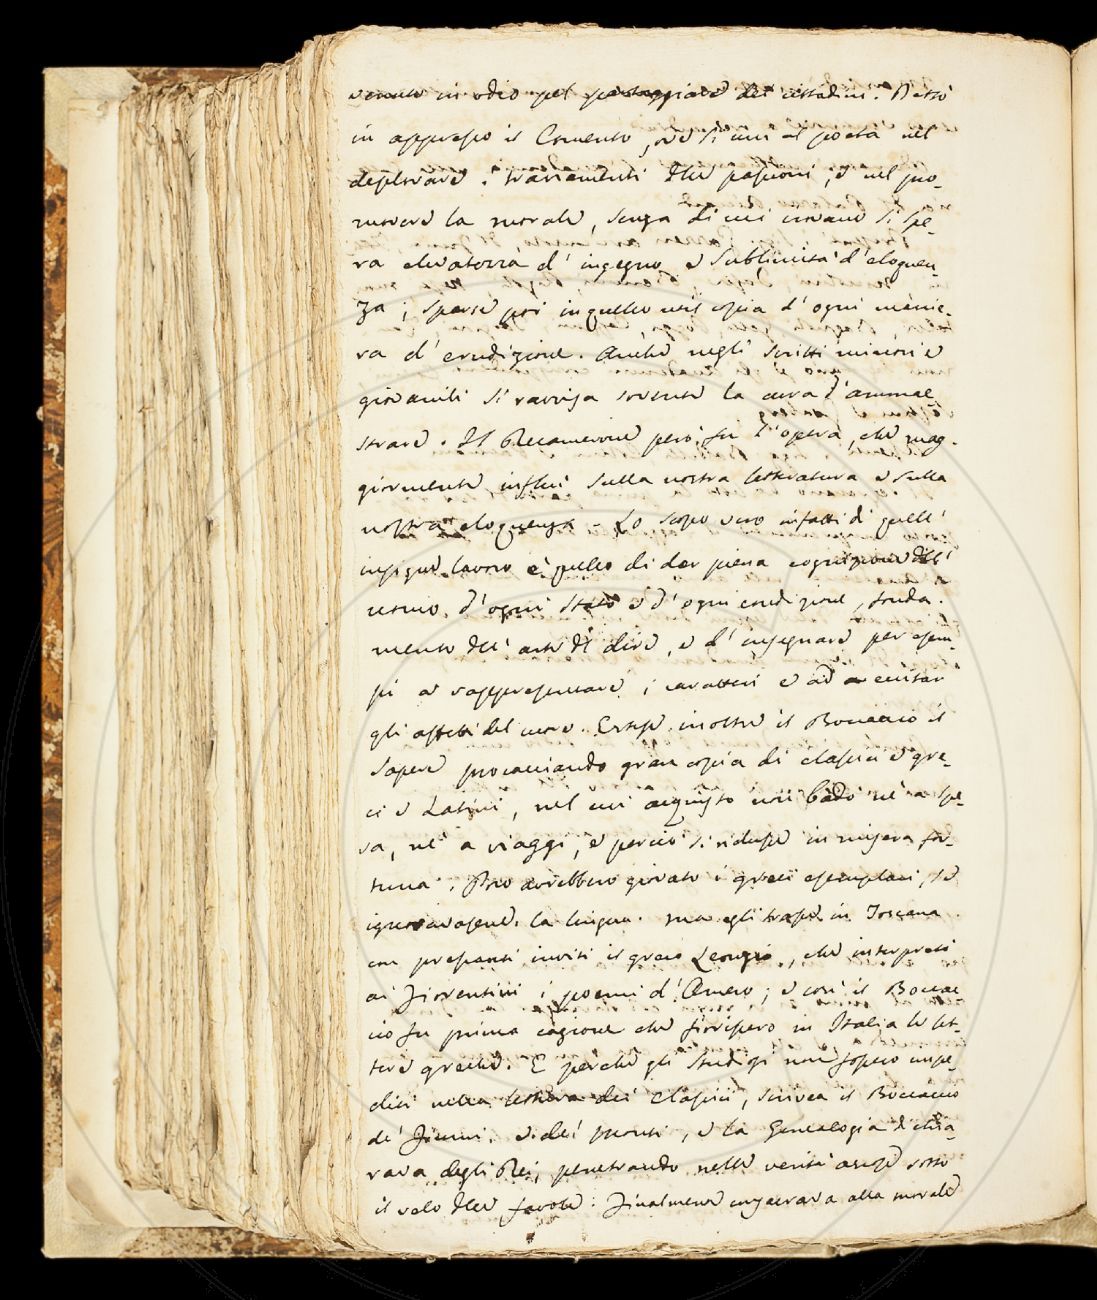 venuto in odio pel parteggiare dei cittadini. Dettò
in appresso il Comento, ove si unì al poeta nel
deplorare i traviamenti delle passioni, e nel pro-
muovere la morale, senza di cui invano si spe-
ra elevatezza d'ingegno e sublimità d'eloquen-
za; sparse poi in quello util copia d'ogni manie-
ra d'erudizione. Anche negli scritti minori e
giovanili si ravvisa sovente la cura d'ammae
strare. Il Decamerone però fu l'opera, che mag-
giormente influì sulla nostra letteratura e sulla
nostra eloquenza - Lo scopo vero infatti di quell'
insigne lavoro è quello di dar piena cognizione dell'
uomo, d'ogni stato e d'ogni condizione, fonda-
mento dell'arte di dire, e d'insegnare per esem-
pi a rappresentare i caratteri e ad eccitar
gli affetti del cuore. Estese inoltre il Boccaccio il
sapere procacciando gran copia di classici e gre-
ci e Latini, nel cui acquisto non badò nè a spe-
sa, nè a viaggi, e perciò si ridusse in misera for-
tuna. Poco avrebbero giovato i greci esemplari, se
ignoravasene la lingua. ma egli trasse in Toscana
con pressanti inviti il greco Leonzio, che interpretò
ai Fiorentini i poemi d'Omero; e così il Boccac
cio fu prima cagione che fiorissero in Italia le let-
tere greche. E perchè gli studiosi non fossero impe-
diti nella lettura dei classici, scrivea il Boccaccio
de' Fiumi, e dei monti, e la Genealogia dichia-
rava degli Dei, penetrando nelle verità ascose sotto
il velo delle favole. Finalmente inservava alla morale